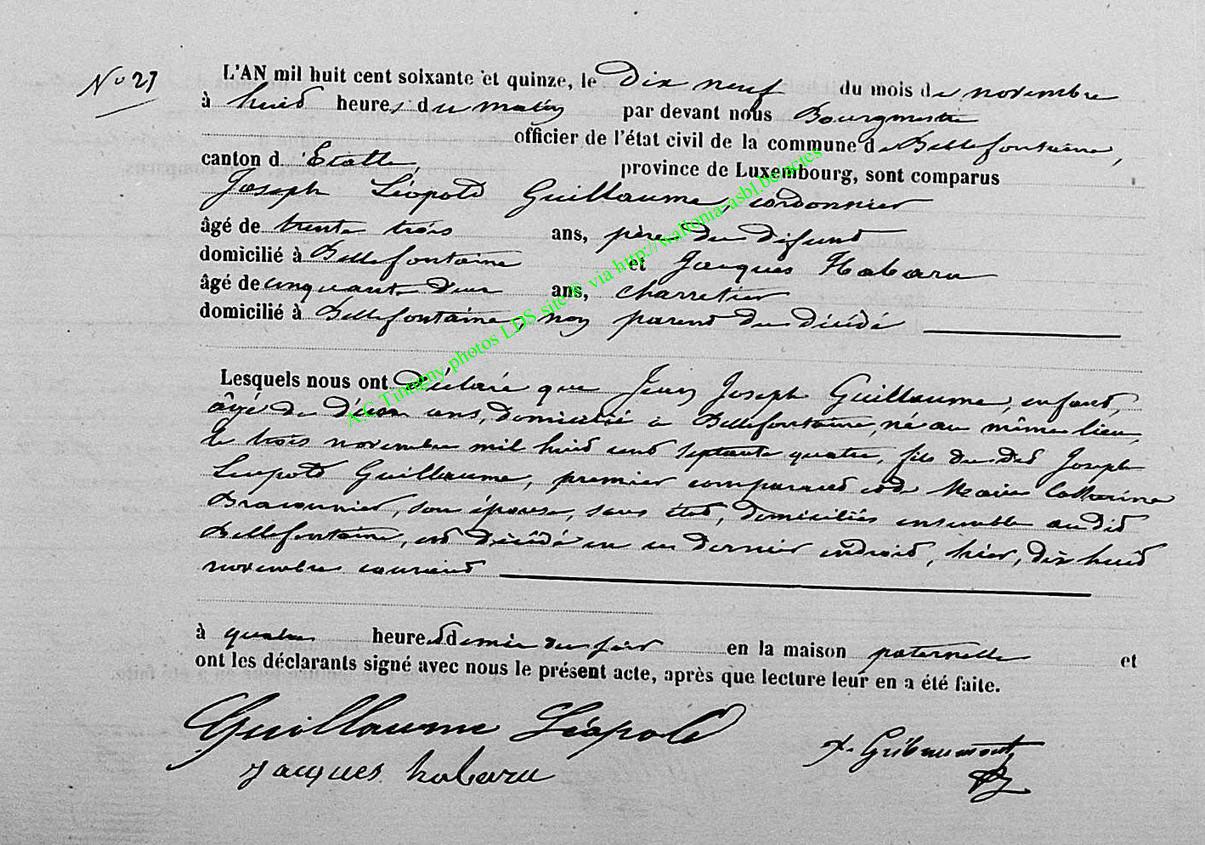 N° 27
L'AN mil huit cent soixante et quinze, le Dix neuf du mois de novembre
à huit heures du matin par devant nous Bourgmestre
officier de l'état civil de la commune de Bellefontaine,
canton d. Etalle, province de Luxembourg, sont comparus
Joseph Léopold Guillaume, cordonnier
âgé de trente trois ans, père du défunt
domicilié à Bellefontaine et Jacques Habaru
âgé de cinquante deux ans, charretier
domicilié à Bellefontaine, non parent du décédé
Lesquels nous ont déclaré que Joseph Guillaume, enfant,
âgé de d'un ans, domicilié à Bellefontaine, né au même lieu,
le trois novembre mil huit cent septante quatre, fils du dit Joseph
Léopold Guillaume, premier comparant et de Marie Catherine
Braconnier, son épouse, sans état, domiciliés ensemble au dit
Bellefontaine, est décédé en ce dernier endroit, hier, dix huit
novembre courant
à quatre heures demie du soir en la maison paternelle et
ont les déclarants signé avec nous le présent acte, après que lecture leur en a été faite.
Guillaume Léopold
Jacques habaru
F. Gribaumont
A.G. Tintigny photos LDS site © via http://wallonia-asbl.be/actes